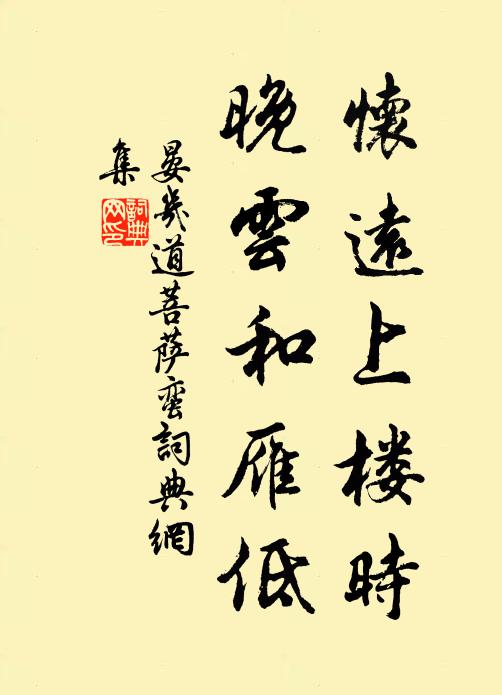 懷遠上楼時
晚雲和雁低
晏幾道菩萨蛮詞典網
集
詞典
网印